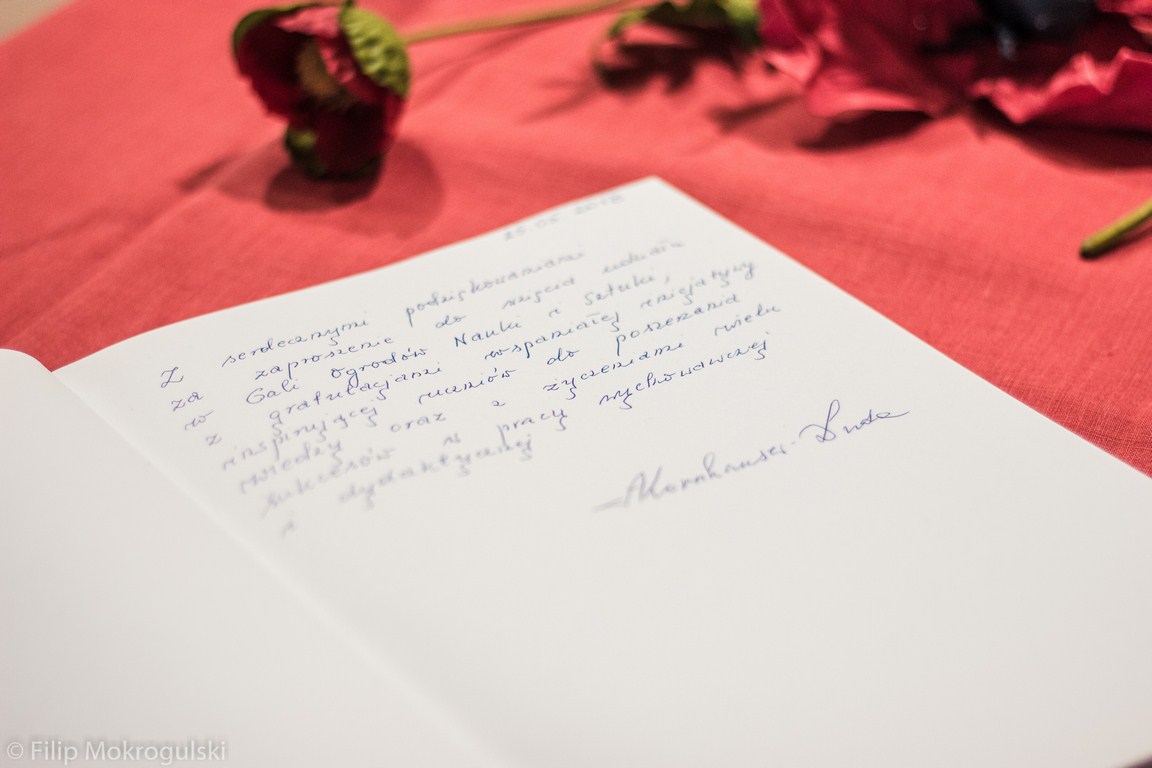 25.05.2018
Z serdecznymi podziękowaniami
za zaproszenie do wzięcia udziału
w Gali Ogrodów Nauki i Sztuki,
z gratulacjami wspaniałej inicjatywy
inspirującej uczniów do poszerzania
wiedzy oraz z życzeniami wielu
sukcesów w pracy wychowawczej
i dydaktycznej
AKornhauser-Duda
© Filip Mokrogulski